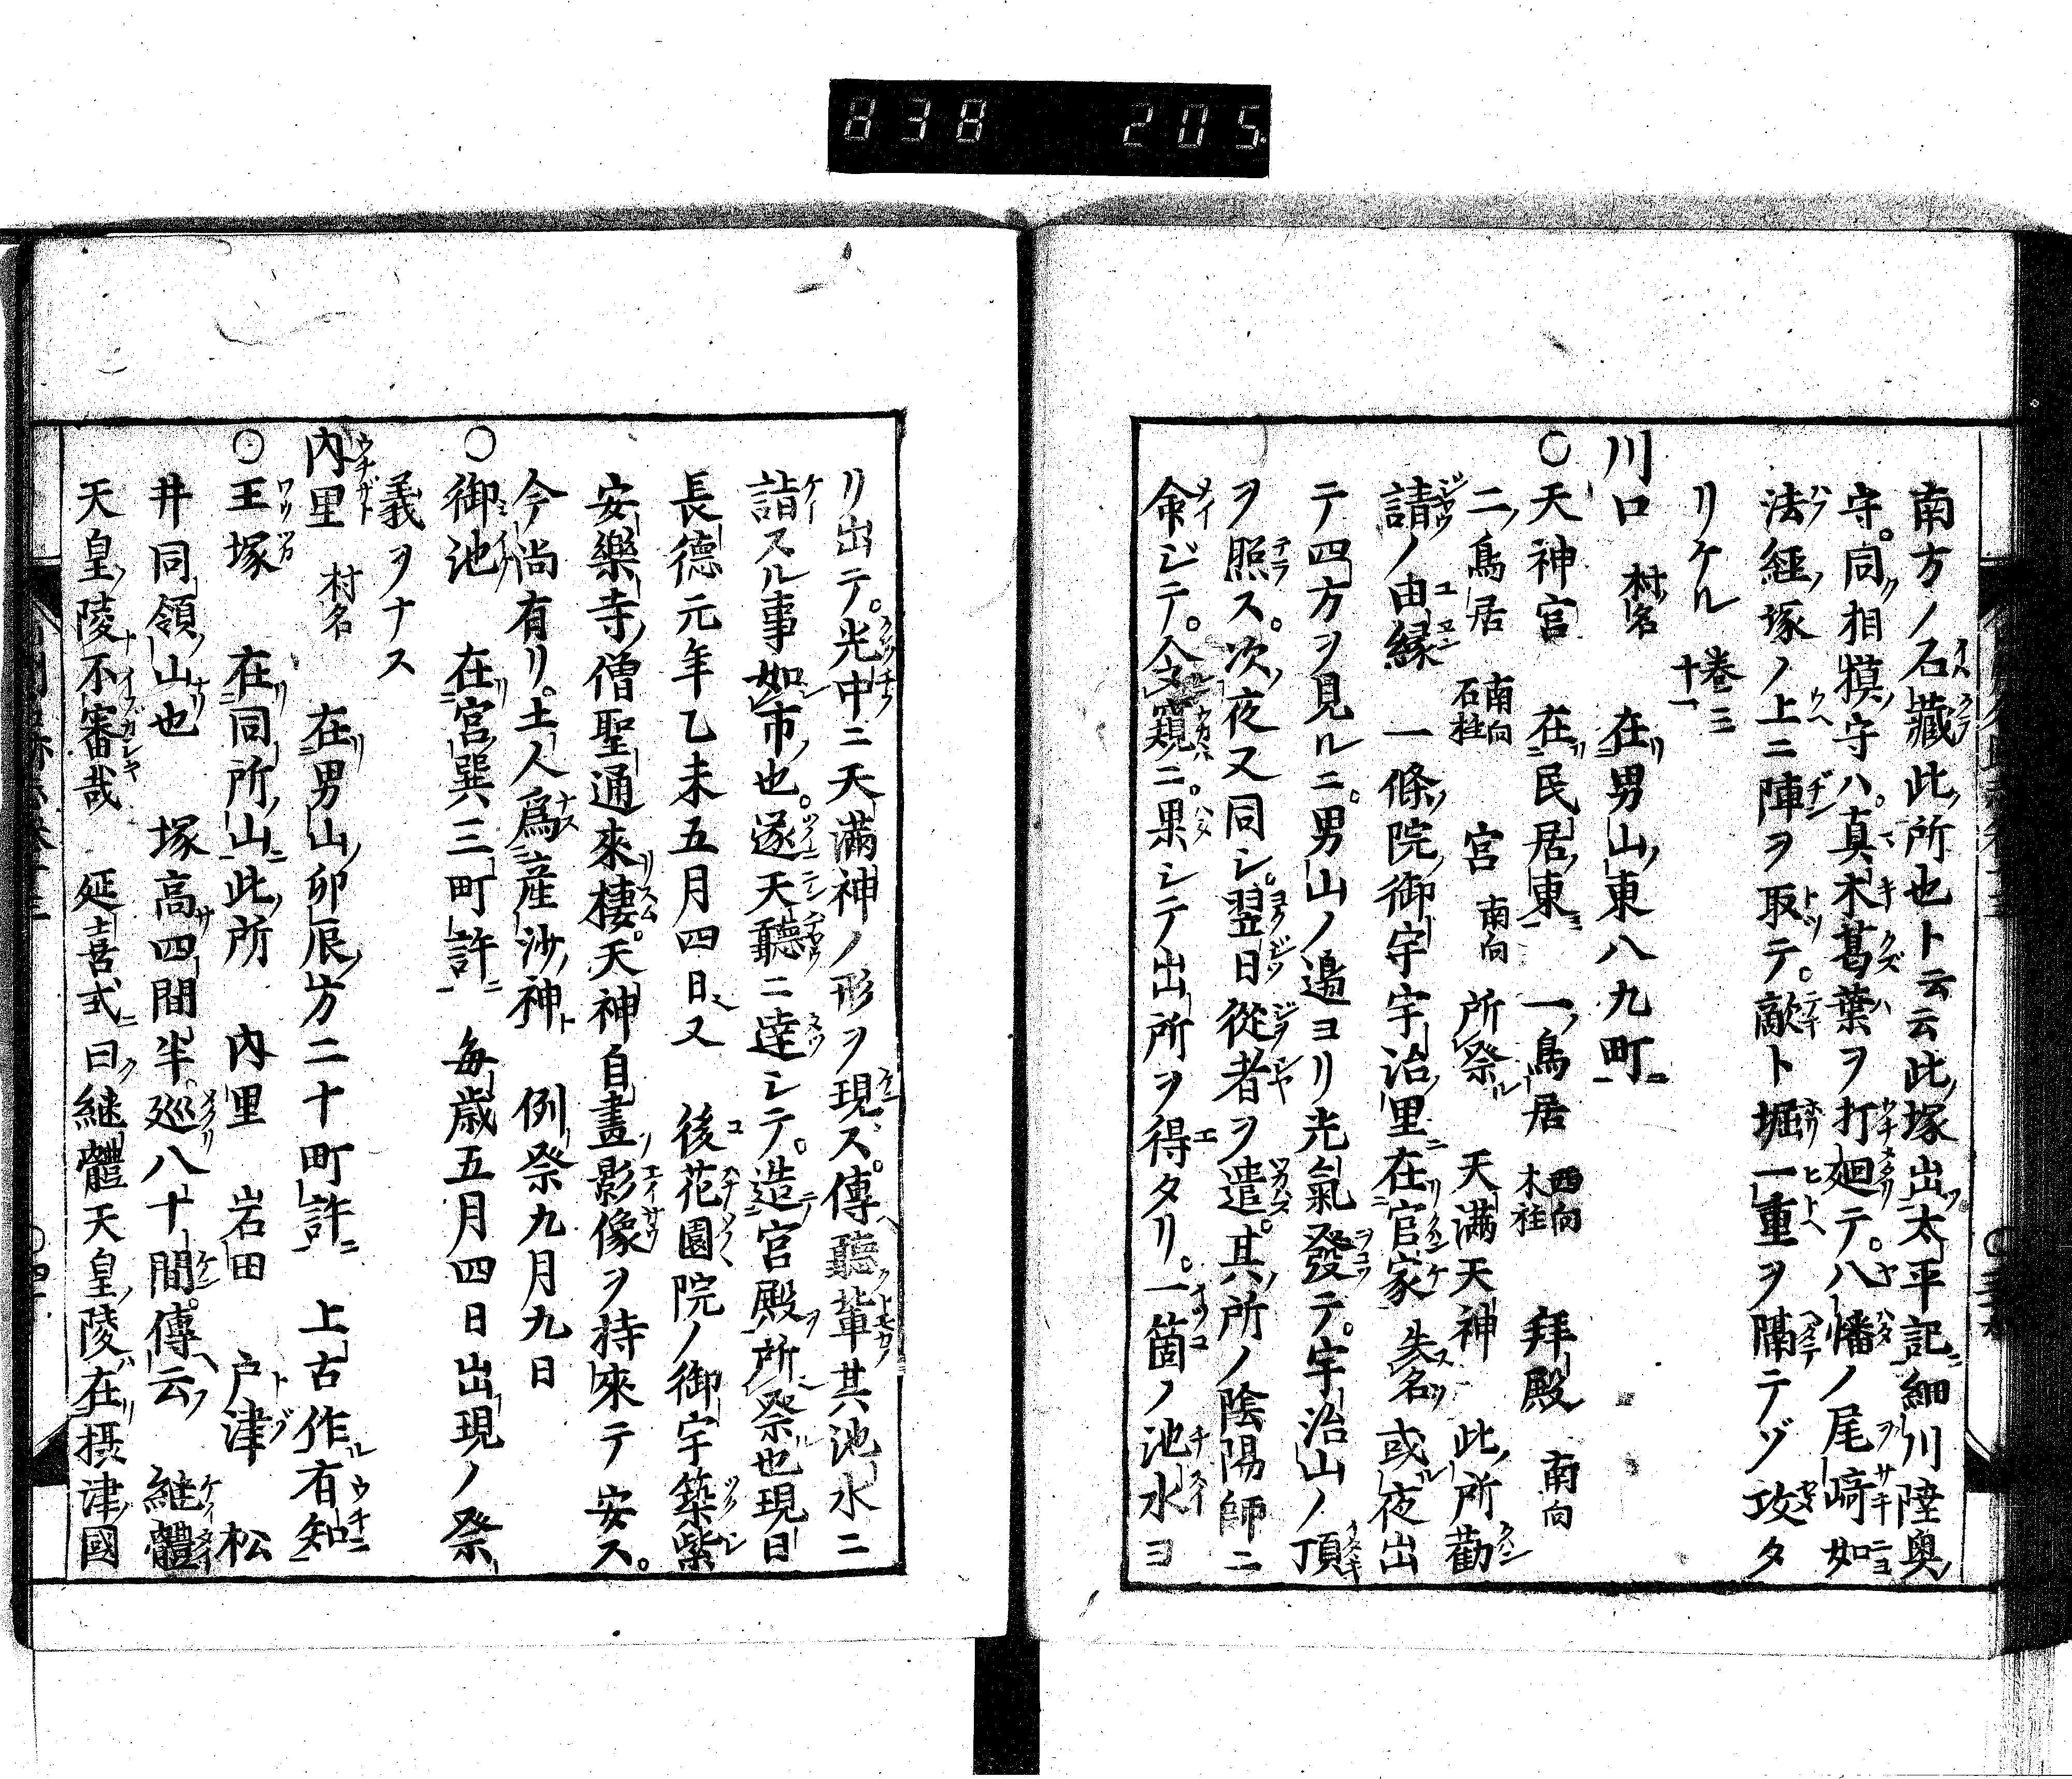 838 205
南方ノ石藏此所也ト云云此塚出太平記細川陸奥
守。同相摸守ハ。真木葛葉ヲ打廻テ。八幡ノ尾﨑如
法經塚ノ上ニ陣ヲ取テ。敵ト堀一重ヲ隔テゾ攻タ
リケル 卷三十一
川口 村名 在男山東八九町
○天神宮 在民居東 一鳥居 西向木柱 拜殿 南向
二鳥居 南向石柱 宮 南向 所祭 天滿天神 此所勸
請ノ由緣 一條院御宇宇治里在官家 失名 或夜出
テ四方ヲ見ルニ。男山ノ邊ヨリ光氣發テ。宇治山ノ頂
ヲ照ス。次夜又同シ。翌日從者ヲ遣。其所ノ陰陽師ニ
命ジテ。令窺ニ。果シテ出所ヲ得タリ。一箇ノ池水ヨ
リ出テ。光中ニ天滿神ノ形ヲ現ス。傳聽輩其池水ニ
詣スル事如市也。遂天聽ニ達シテ。造宮殿所祭也現日
長德元年乙未五月四日又 後花園院ノ御宇築紫
安樂寺僧聖通來棲。天神自畫影像ヲ持來テ安ス。
今尚有リ。土人爲産沙神 例祭九月九日
○御池 在宮巽三町許 每歲五月四日出現ノ祭
義ヲナス
內里 村名 在男山卯辰方二十町許 上古作有知
○王塚 在同所山此所 內里 岩田 戸津 松
井同領山也 塚高四間半巡八十間。傳云 繼體
天皇陵不審哉 延喜式曰繼體天皇陵在摂津國